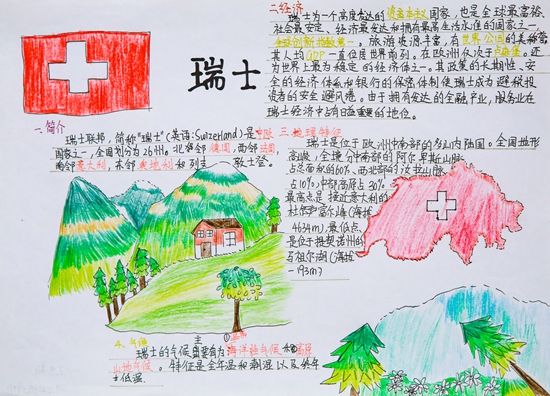 瑞士
二.经济
瑞士为一个高度发达的资本主义国家，也是全球最富裕、
社会最安定、经济最发达和拥有最高生活水准的国家之一，
全球创新指数第一。旅游资源丰富，有世界公园的美称
其人均GDP一直位居世界前列。在欧洲仅次于卢森堡。还
为世界上最为稳定的经济体之一。其政策的长期性、安
全的经济体系和银行的保密体制使瑞士成为避税投
资者的安全避风港。由于拥有发达的金融产业，服务业在
瑞士经济中占有日益重要的地位。
一.简介
瑞士联邦，简称"瑞士"（英语:Switzerland）是中欧
国家之一，全国划分为26州。北邻德国，西邻法国，
南邻意大利，东邻奥地利和列支敦士登。
三.地理特征
瑞士是位于欧洲中南部的多山内陆国。全国地形
高峻，全境分中南部的阿尔卑斯山脉
占总面积的60%、西北部的汝拉山脉
占10%，中部高原占30%。
最高点是接近意大利的
杜富尔峰（海拔
4634m），最低点
是位于提契诺州的
马祖尔湖（海拔
-193m）
四.气候
瑞士的气候主要为海洋性气候和高原
山地气候。特征是全年温和潮湿以及终年
低温